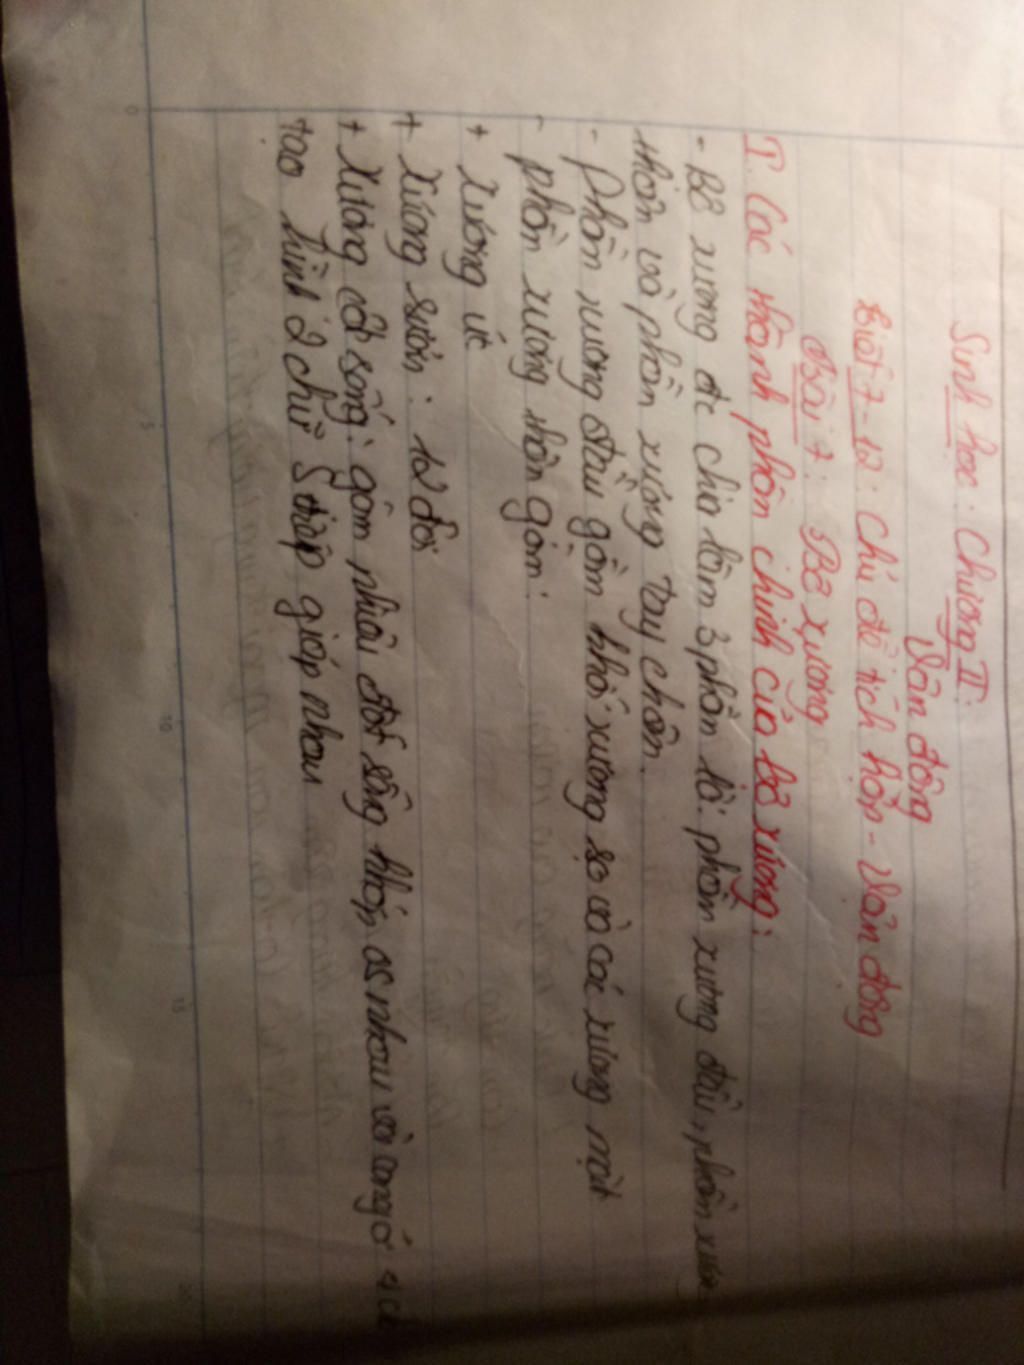 Sinh học: Chương II:
Vận động
tiết 7-12: Chủ đề tích hợp - Vận động
Bài 7: Bộ xương
I. Các thành phần chính của bộ xương:
- Bộ xương đc chia làm 3 phần là: phần xương đầu, phần xương
thân và phần xương tay chân.
- Phần xương đầu gồm khối xương sọ và các xương mặt
- phần xương thân gồm:
+ xương ức
+ xương sườn: 12 đôi
+ xương cột sống: gồm nhiều đốt sống khớp vs nhau và cong ở 4
tạo hình 2 chữ S tiếp giáp nhau